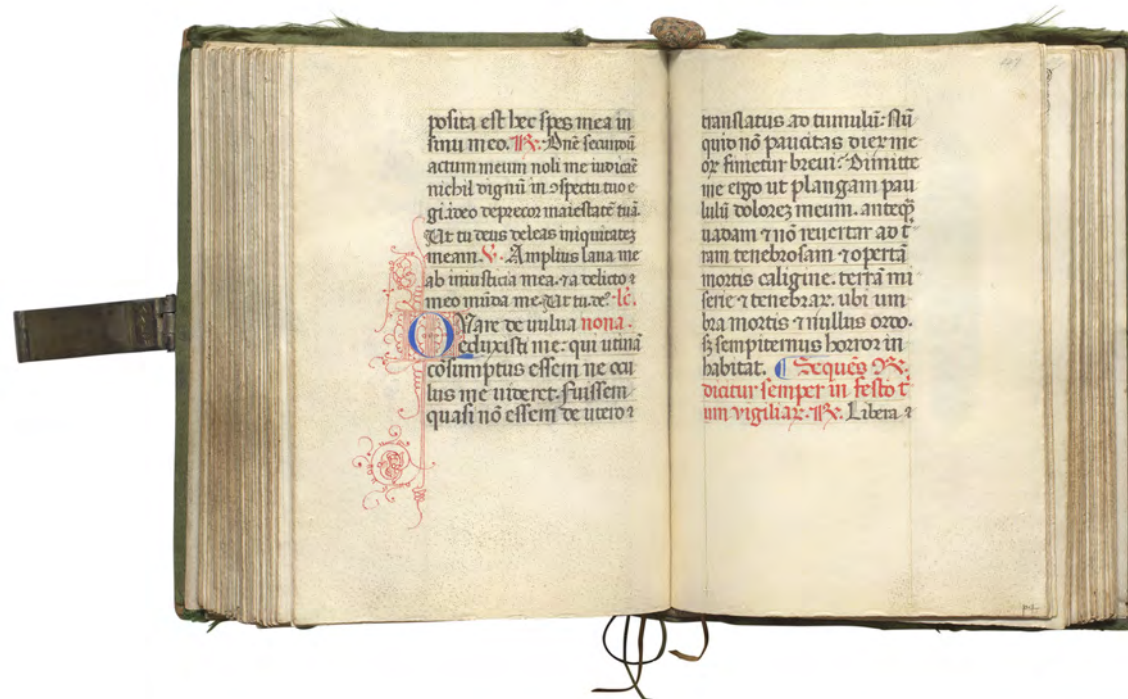 posita est hec spes mea in
sinu meo. R. Dn̄e secundū
actum meum noli me iudicar̄e
nichil dignū in ɔspectu tuo e
gi. ideo deprecor maiestatē tuā.
Ut tu deus deleas iniquitatez
meam. V. Amplius laua me
ab iniusticia mea. ⁊ a delicto ⁊
meo mūda me. Ut tu. de². lc̄.
QUare de uulua nona.
eduxisti me: qui utinā
cōsumptus essem ne ocu
lus me uideret. fuissem
quasi nō essem de utero ⁊
translatus ad tumulū: Nū
quid nō paucitas dier me
oꝝ finietur breui? Dimitte
me ergo ut plangam pau
lulū dolorez meum. anteqꝫ
uadam ⁊ nō reuertar ad t̄
ram tenebrosam ⁊ opertā
mortis caligine. terrā mi
serie ⁊ tenebraꝝ. ubi um
bra mortis ⁊ nullus ordo.
sꝫ sempiternus horror in
habitat. ¶ Sequēs R.
dicitur semper in festo t̄
um vigiliaꝝ. R. Libera ⁊